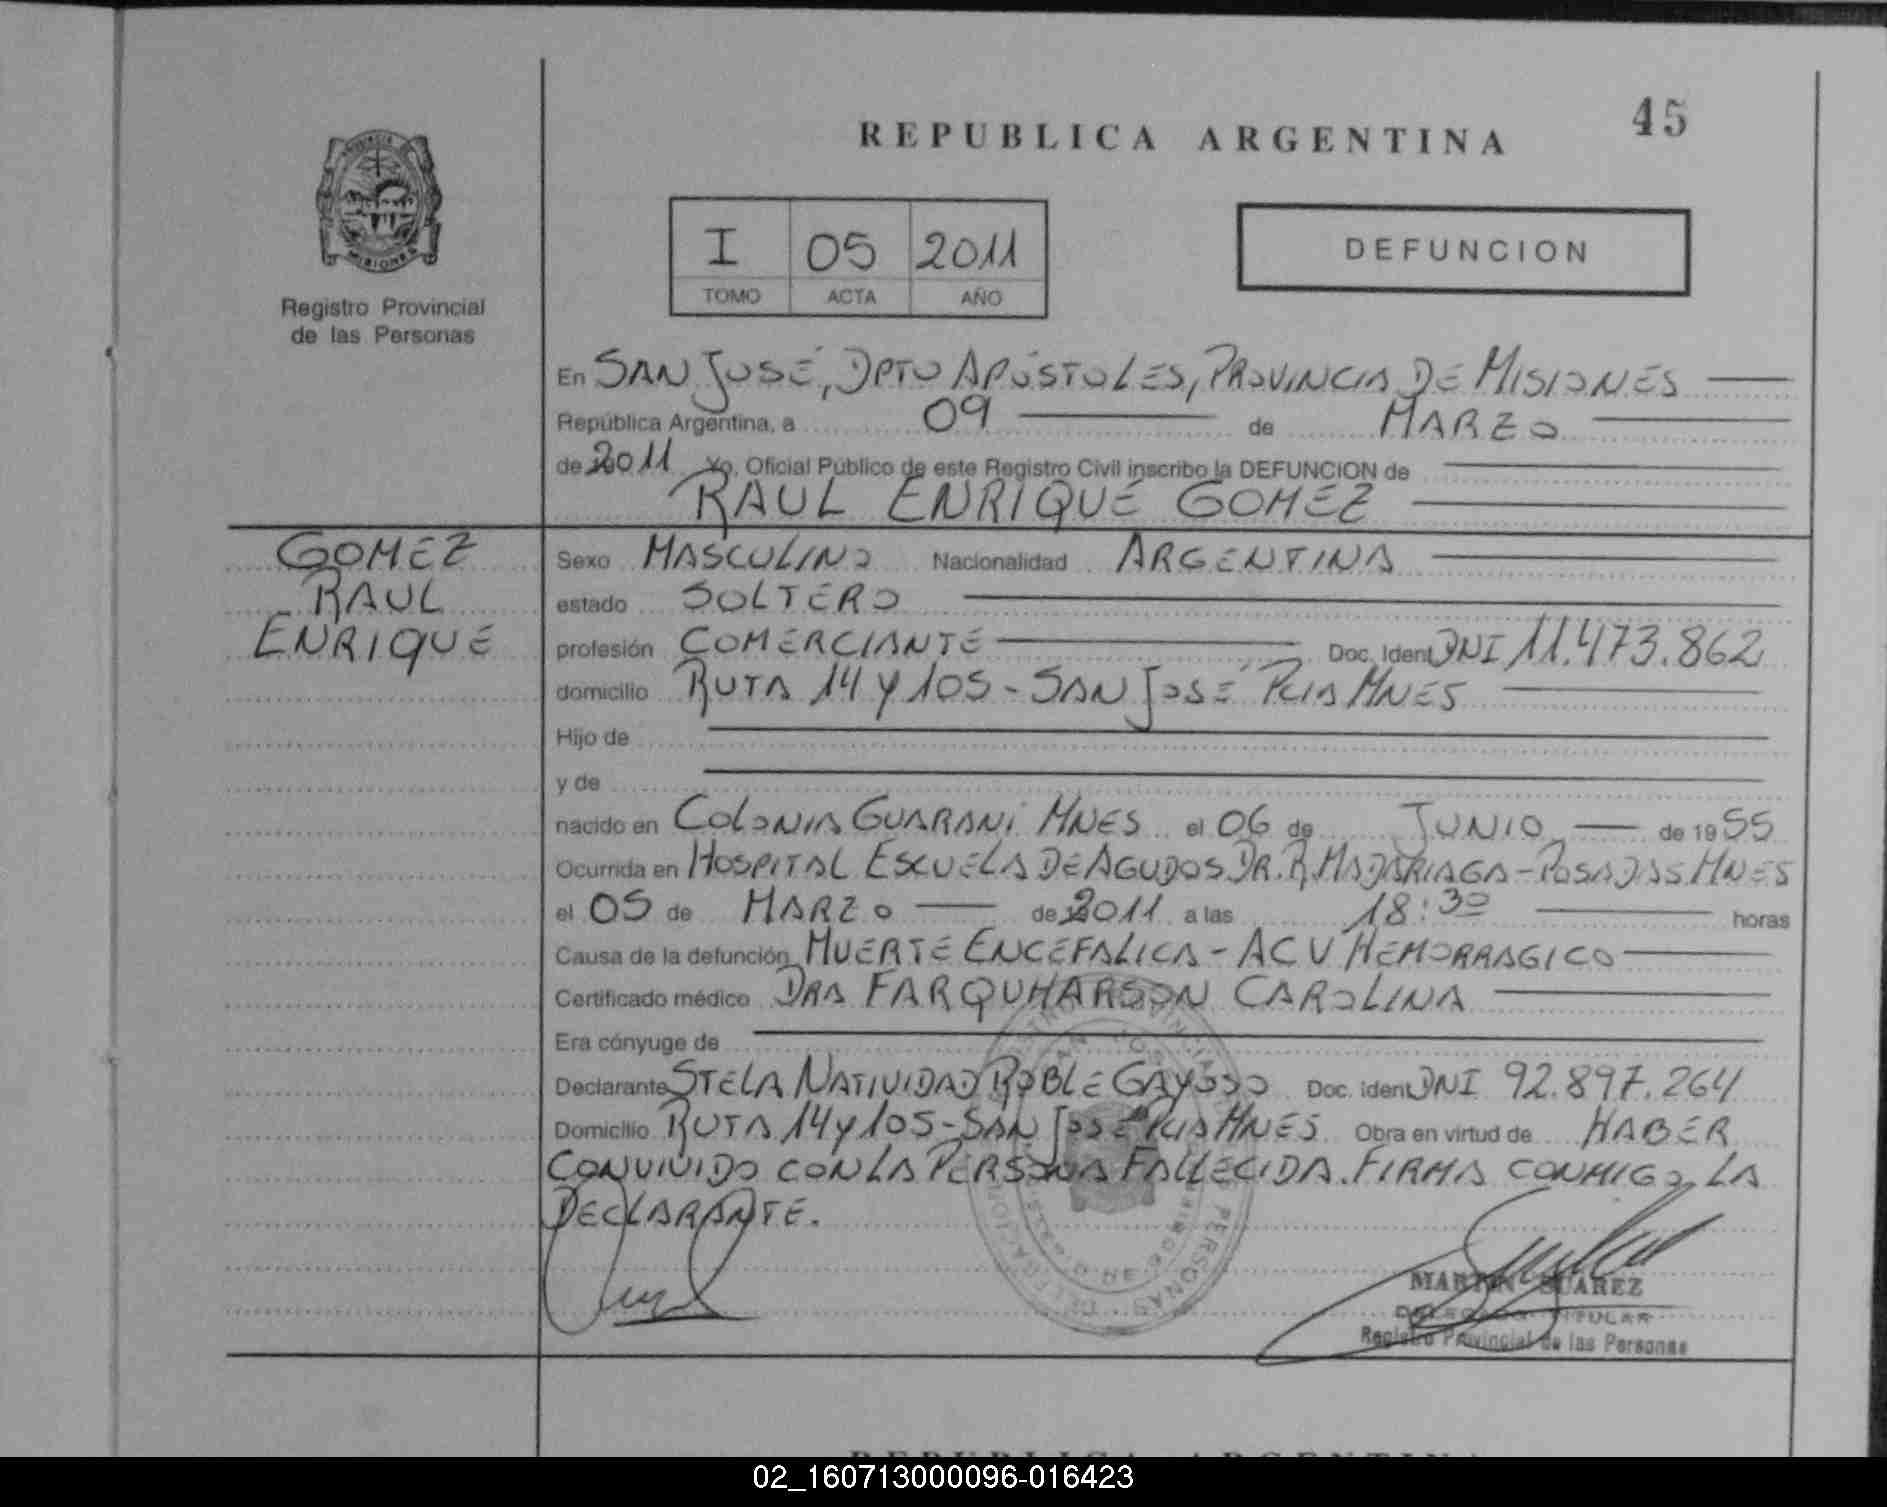 45
REPUBLICA ARGENTINA
PROVINCIA DE
MISIONES
Registro Provincial
de las Personas
I 05 2011
TOMO ACTA AÑO
DEFUNCION
En SAN JOSÉ, DPTO APÓSTOLES, PROVINCIA DE MISIONES
República Argentina, a 09 de MARZO
de 2011 Yo, Oficial Público de este Registro Civil inscribo la DEFUNCION de
RAUL ENRIQUE GOMEZ
GOMEZ
RAUL
ENRIQUE
Sexo MASCULINO Nacionalidad ARGENTINA
estado SOLTERO
profesión COMERCIANTE Doc. Ident DNI 11.473.862
domicilio RUTA 14 y 105 - SAN JOSÉ PCIA MNES
Hijo de
y de
nacido en COLONIA GUARANI MNES el 06 de JUNIO de 1955
Ocurrida en HOSPITAL ESCUELA DE AGUDOS DR. R. MADARIAGA - POSADAS MNES
el 05 de MARZO de 2011 a las 18:30 horas
Causa de la defunción MUERTE ENCEFALICA - ACV HEMORRAGICO
Certificado médico DRA FARQUHARSON CAROLINA
Era cónyuge de
Declarante STELA NATIVIDAD ROBLE GAYOSO Doc. ident DNI 92.897.264
Domicilio RUTA 14 y 105 - SAN JOSÉ PCIA MNES Obra en virtud de HABER
CONVIVIDO CON LA PERSONA FALLECIDA. FIRMA CONMIGO LA
DECLARANTE.
MARTIN SUAREZ
DELEGADO TITULAR
Registro Provincial de las Personas
REPUBLICA ARGENTINA
02_160713000096-016423